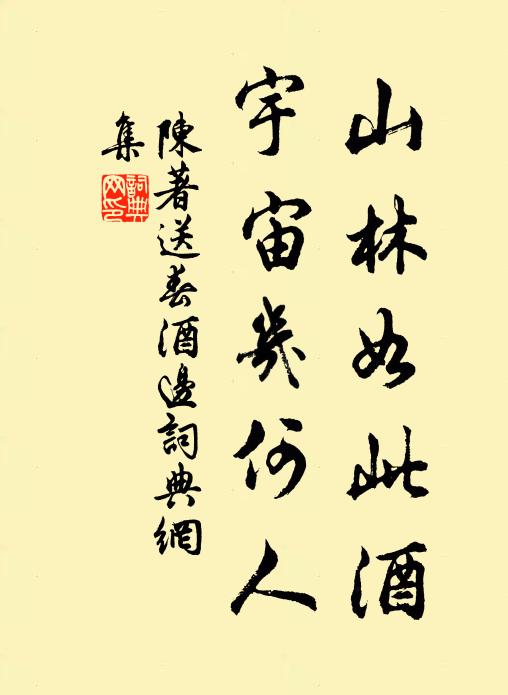 山林如此酒
宇宙幾何人
陳著送春酒邊詞典網
集
詞典網印